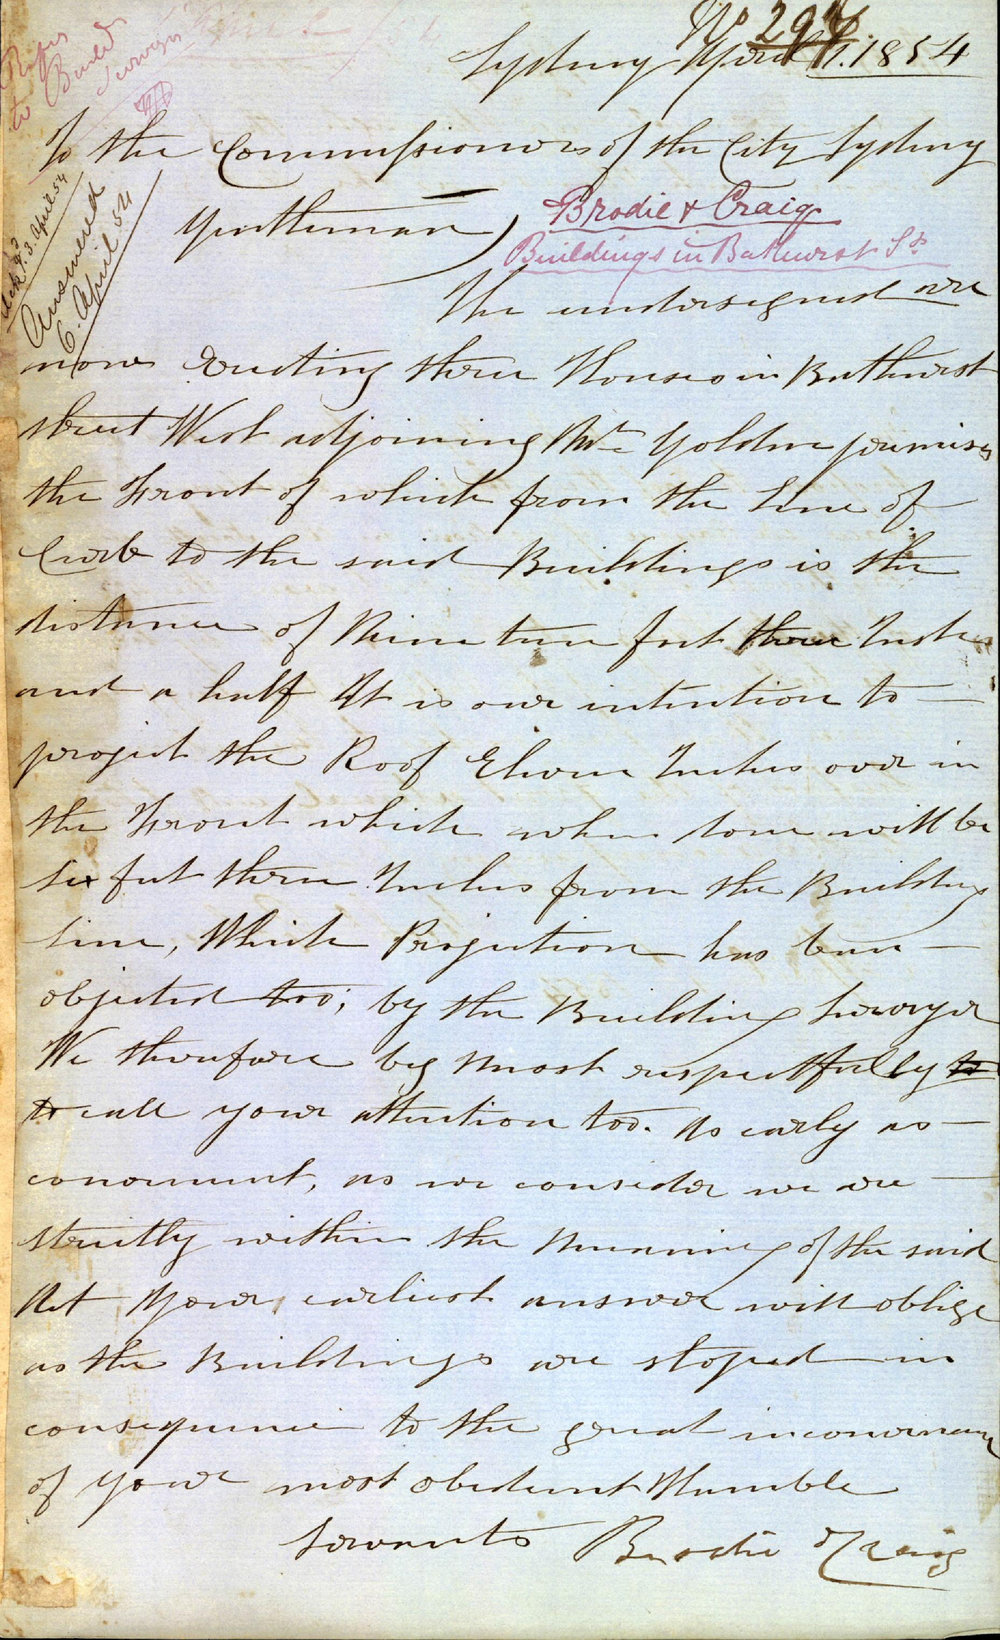 No 297
Sydney April 1. 1854
Refer
to Build
Surveyor
To the Commissioners of the City Sydney
Gentleman)
Brodie & Craig
Buildings in Bathurst St.
Ackd 3. April 54
Answered
6. April 54
The undersigned are
now Erecting three Houses in Bathurst
street West adjoining Mr Goldin premises
the Front of which from the Line of
Curb to the said Buildings is the
distance of Nine teen feet three Inches
and a half It is our intention to
project the Roof Eleven Inches over in
the Front which when done will be
Six feet three Inches from the Building
Line, Which Projection has been
objected too; by the Building Surveyor
We therefore beg most respectfully to
to call your attention too. As early as
convenient, as we consider we are
strictly within the Meaning of the said
Act Your earliest answer will oblige
as the Buildings are stoped in
consequence to the great inconvenience
of your most obedient Humble
Servants Brodie & Craig